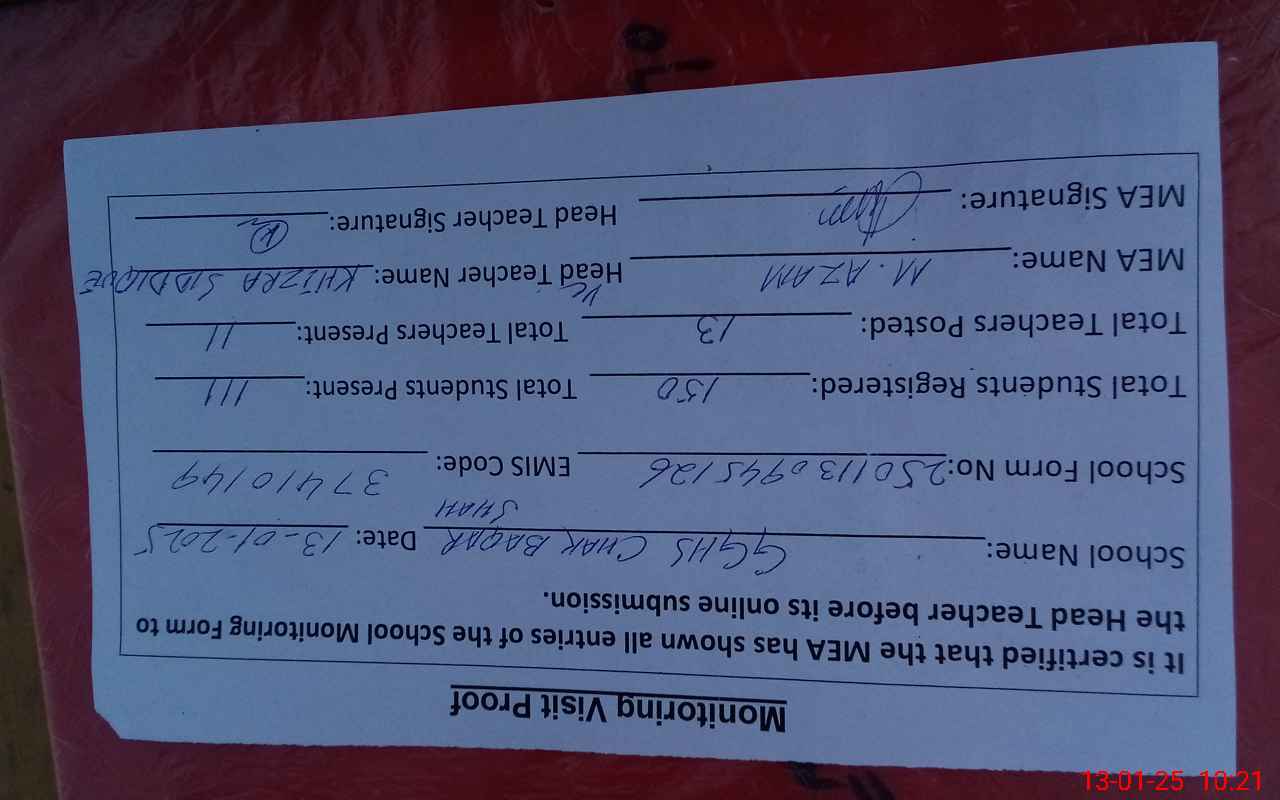 Monitoring Visit Proof
It is certified that the MEA has shown all entries of the School Monitoring Form to
the Head Teacher before its online submission.
School Name: GGHS CHAK BAQAR SHAH Date: 13-01-2025
School Form No: 2501130945126 EMIS Code: 37410149
Total Students Registered: 150 Total Students Present: 111
Total Teachers Posted: 13 Total Teachers Present: 11
MEA Name: M. AZAM Head Teacher Name: KHIZRA SIDDIQUE
MEA Signature: Head Teacher Signature:
13-01-25 10:21